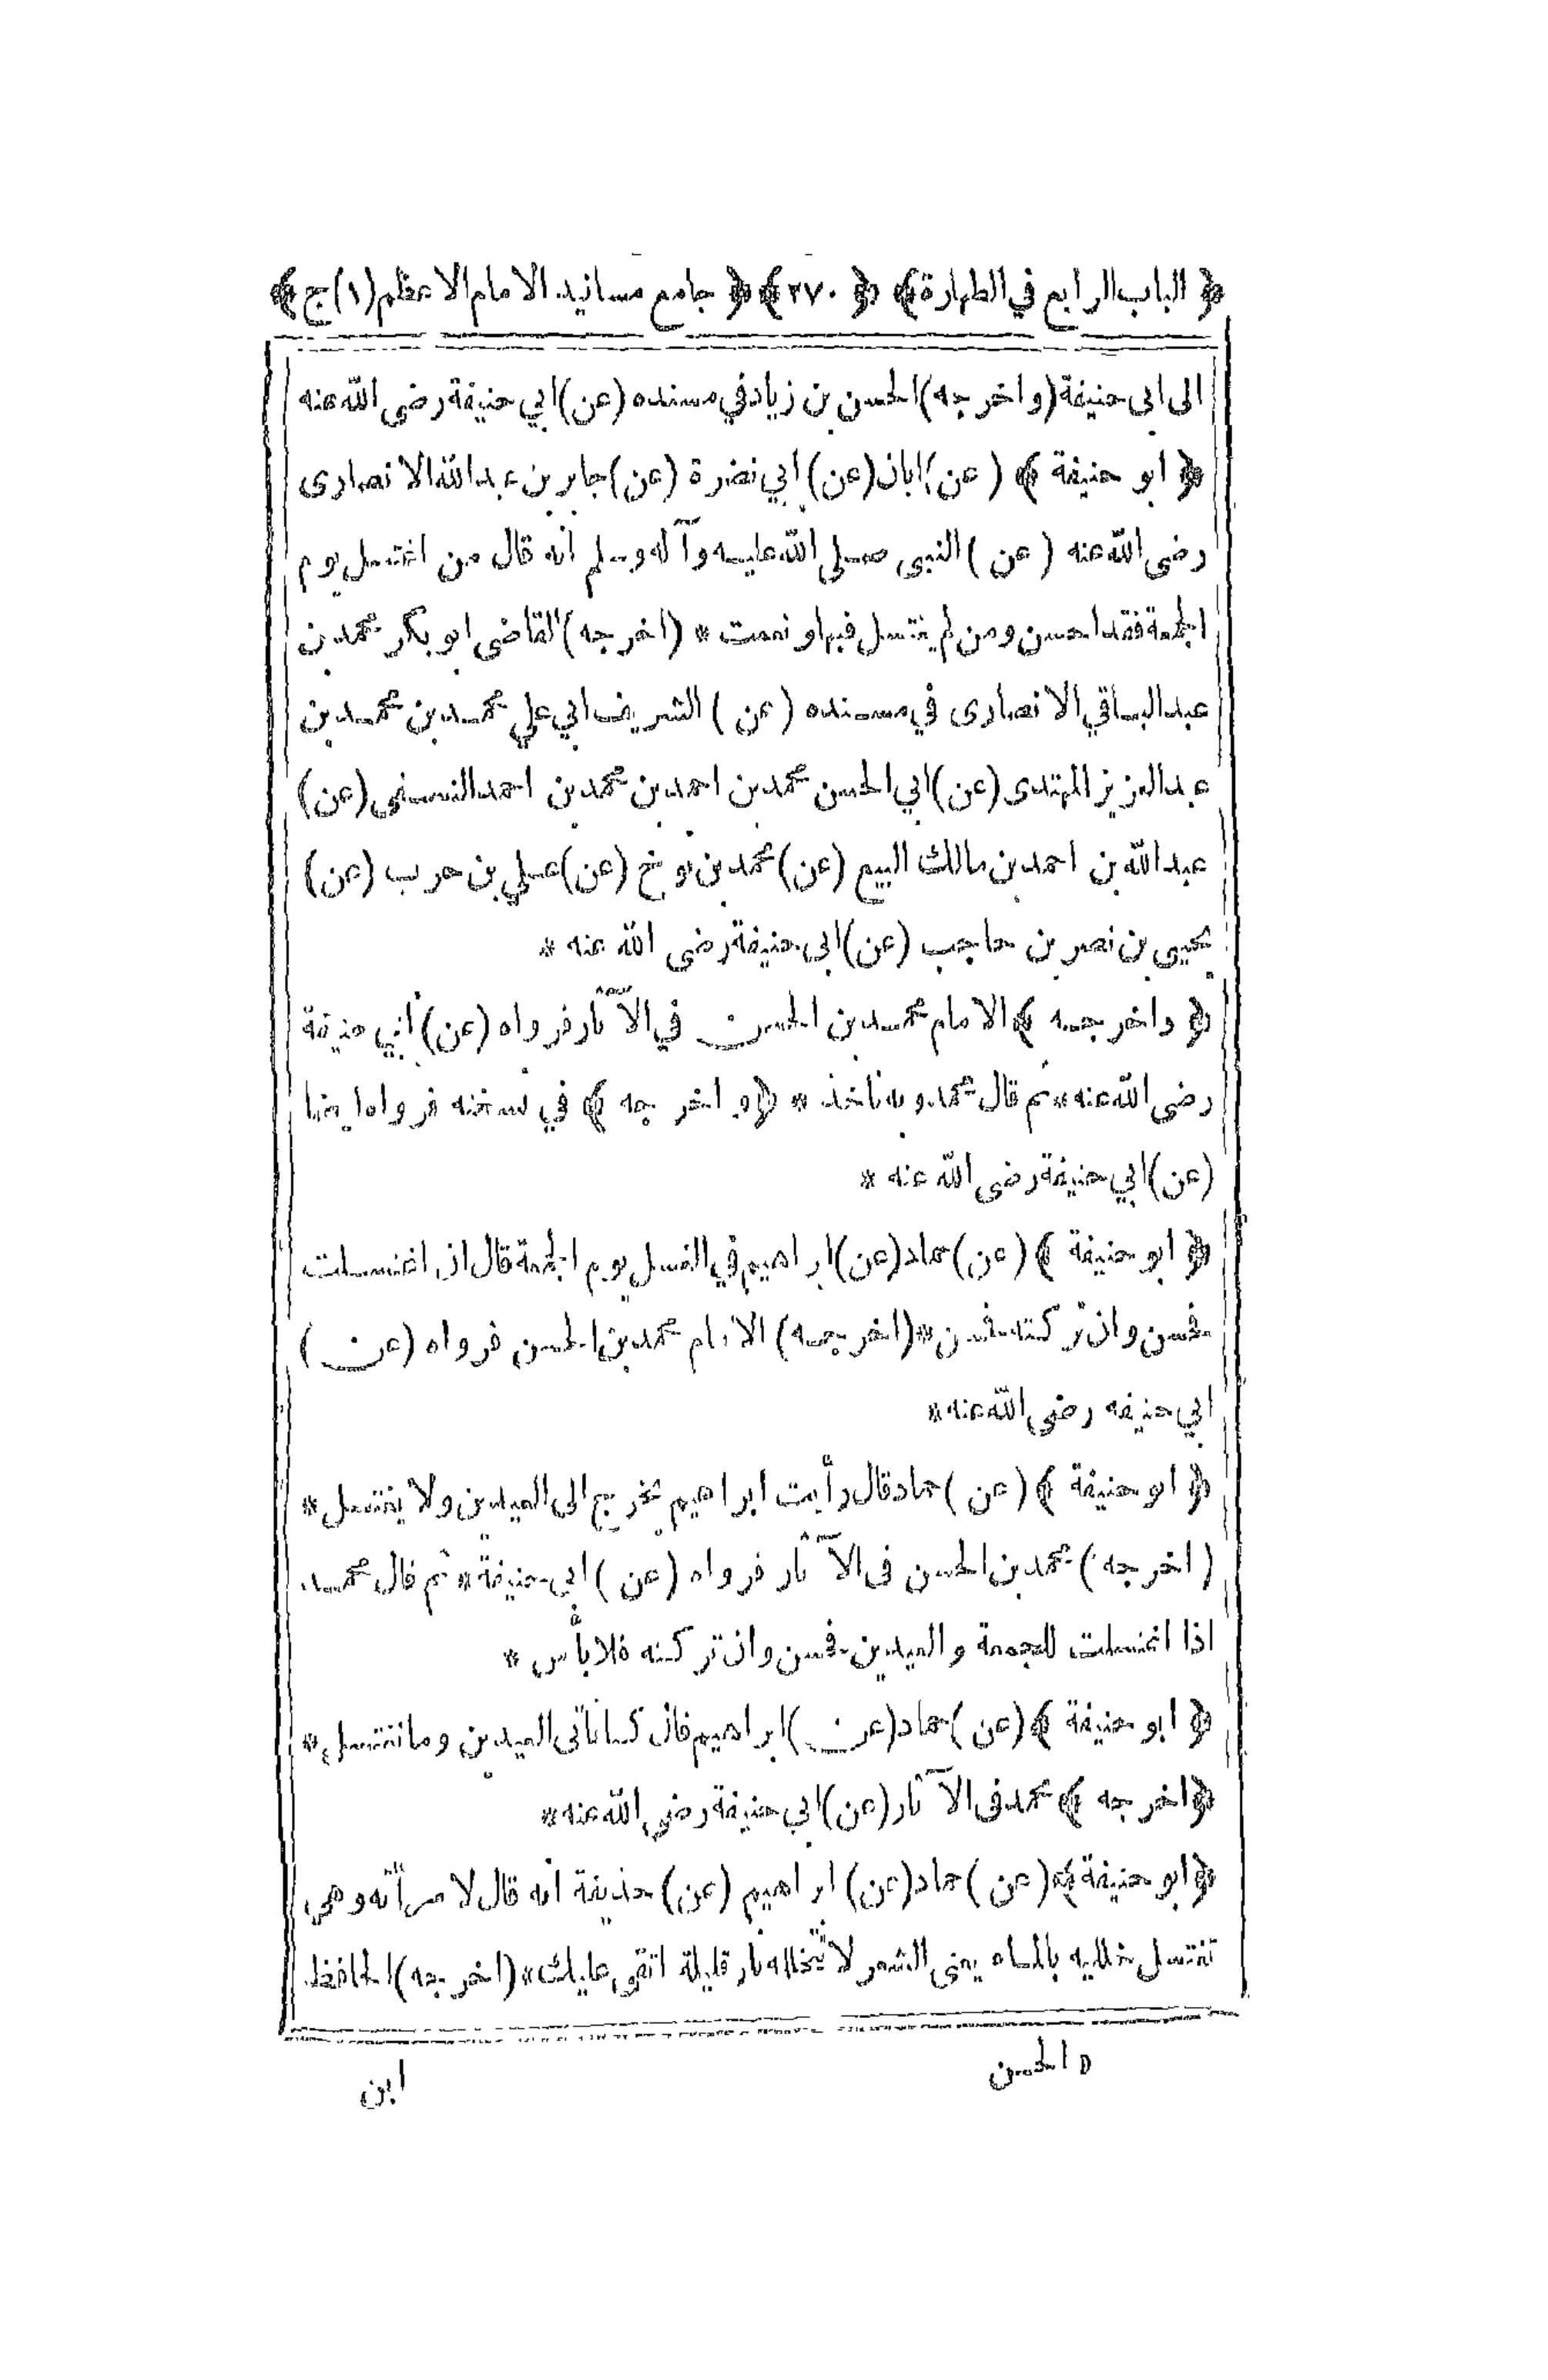 ﴿ الباب الرابع في الطهارة ﴾ ﴿ ٢٧٠ ﴾ ﴿ جامع مسانيد الامام الاعظم (١) ج ﴾
الى ابى حنيفة (واخرجه) الحسن بن زياد في مسنده (عن) ابي حنيفة رضى الله عنه
﴿ ابو حنيفة ﴾ (عن) ابان (عن) ابي نضرة (عن) جابر بن عبد الله الانصارى
رضى الله عنه (عن) النبى صلى الله عليه وآله وسلم انه قال من اغتسل يوم
الجمعة فقد احسن ومن لم يغتسل فبها ونعمت * (اخرجه) القاضى ابو بكر محمد بن
عبد الباقي الانصارى في مسنده (عن) الشريف ابي علي محمد بن محمد بن
عبد العزيز المهتدى (عن) ابي الحسن محمد بن احمد بن محمد بن احمد (عن)
عبد الله بن احمد بن مالك البيع (عن) محمد بن (عن) علي بن حرب (عن)
يحيى بن نصر بن حاجب (عن) ابى حنيفة رضى الله عنه *
﴿ واخرجه ﴾ الامام محمد بن الحسن في الآثار فرواه (عن) أبي حنيفة
رضى الله عنه * ثم قال محمد وبه نأخذ * ﴿ واخرجه ﴾ في نسخته فرواه ايضا
(عن) ابي حنيفة رضى الله عنه *
﴿ ابو حنيفة ﴾ (عن) حماد (عن) ابراهيم في الغسل يوم الجمعة قال ان اغتسلت
فحسن وان تركته فحسن * (اخرجه) الامام محمد بن الحسن فرواه (عن)
ابي حنيفه رضى الله عنه *
﴿ ابو حنيفة ﴾ (عن) حماد قال رأيت ابراهيم يخرج الى العيدين ولا يغتسل *
(اخرجه) محمد بن الحسن فى الآثار فرواه (عن) ابى حنيفة * ثم قال محمد
اذا اغتسلت للجمعة والعيدين فحسن وان تركته فلا بأس *
﴿ ابو حنيفة ﴾ (عن) حماد (عن) ابراهيم قال كنا نأتى العيدين وما نغتسل *
﴿ اخرجه ﴾ محمد فى الآثار (عن) ابي حنيفة رضى الله عنه *
﴿ ابو حنيفة ﴾ (عن) حماد (عن) ابراهيم (عن) حذيفة انه قال لامرأته وهى
تغتسل خلليه بالماء يعنى الشعر لا تخلله نار قليلة اتقى عليك * (اخرجه) الحافظ
ه الحسن
ابن